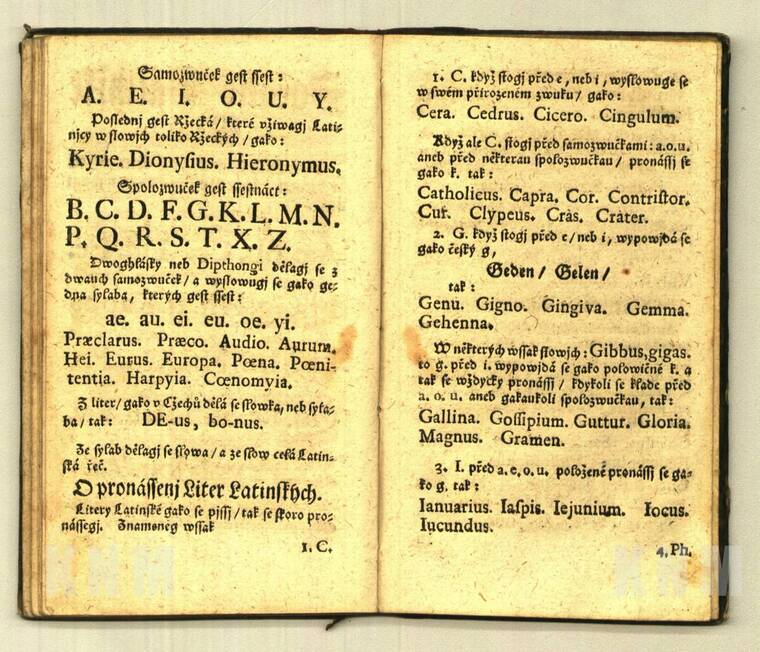 Samozwuček gest ssest:
A. E. I. O. U. Y.
Poslednj gest Ržecká/ které vžiwagj Lati-
njcy w slowjch toliko Ržeckých/ gako:
Kyrie. Dionyſius. Hieronymus.
Spolozwuček gest ssestnáct:
B. C. D. F. G. K. L. M. N.
P. Q. R. S. T. X. Z.
Dwoghlásky neb Dipthongi dělagj se z
dwauch samozwuček/ a wyslowugj se gako ge-
dna sylaba, kterých gest ssest:
ae. au. ei. eu. oe. yi.
Præclarus. Præco. Audio. Aurum.
Hei. Eurus. Europa. Pœna. Pœni-
tentia. Harpyia. Cœnomyia.
Z liter/ gako v Czechů dělá se slowka, neb syla-
ba/ tak: DE-us, bo-nus.
Ze sylab dělagj se slowa/ a ze slow celá Latin-
ská řeč.
O pronássenj Liter Latinských.
Litery Latinské gako se pjssj/ tak se skoro pro-
nássegj. Znameneg wssak
1. C.
1. C. když stogj před e, neb i, wyslowuge se
w swém přirozeném zwuku/ gako:
Cera. Cedrus. Cicero. Cingulum.
Když ale C. stogj před samozwučkami: a. o. u.
aneb před některau spolozwučkau/ pronássj se
gako k. tak:
Catholicus. Capra. Cor. Contriſtor.
Cur. Clypeus. Cràs. Cràter.
2. G. když stogj před e/ neb i, wypowjdá se
gako český g,
Geden/ Gelen/
tak:
Genu. Gigno. Gingiva. Gemma.
Gehenna.
W některých wssak slowjch: Gibbus, gigas.
to g. před i. wypowjdá se gako polowičné k. a
tak se wždycky pronássj/ kdykoli se klade před
a. o. u. aneb gakaukoli spolozwučkau, tak:
Gallina. Goſſipium. Guttur. Gloria.
Magnus. Gramen.
3. I. před a. e. o. u. položené pronássj se ga-
ko g. tak:
Ianuarius. Iaſpis. Iejunium. Iocus.
Iucundus.
4. Ph.
KNM
KNM